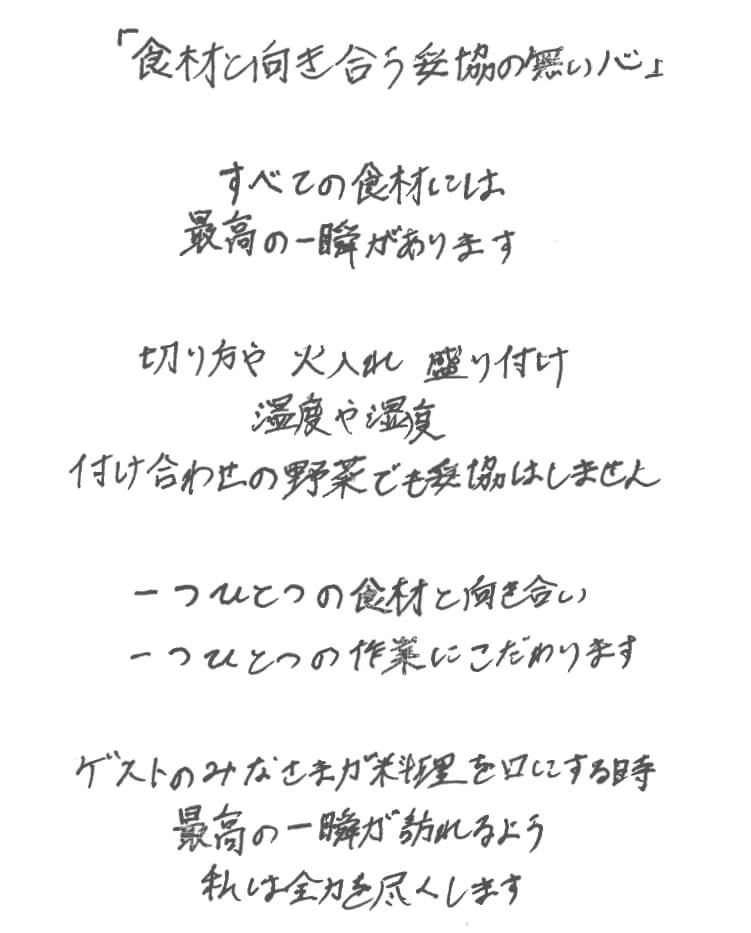 「食材と向き合う妥協の無い心」
すべての食材には
最高の一瞬があります
切り方や 火入れ 盛り付け
温度や湿度
付け合わせの野菜でも妥協はしません
一つひとつの食材と向き合い
一つひとつの作業にこだわります
ゲストのみなさまが料理を口にする時
最高の一瞬が訪れるよう
私は全力を尽くします